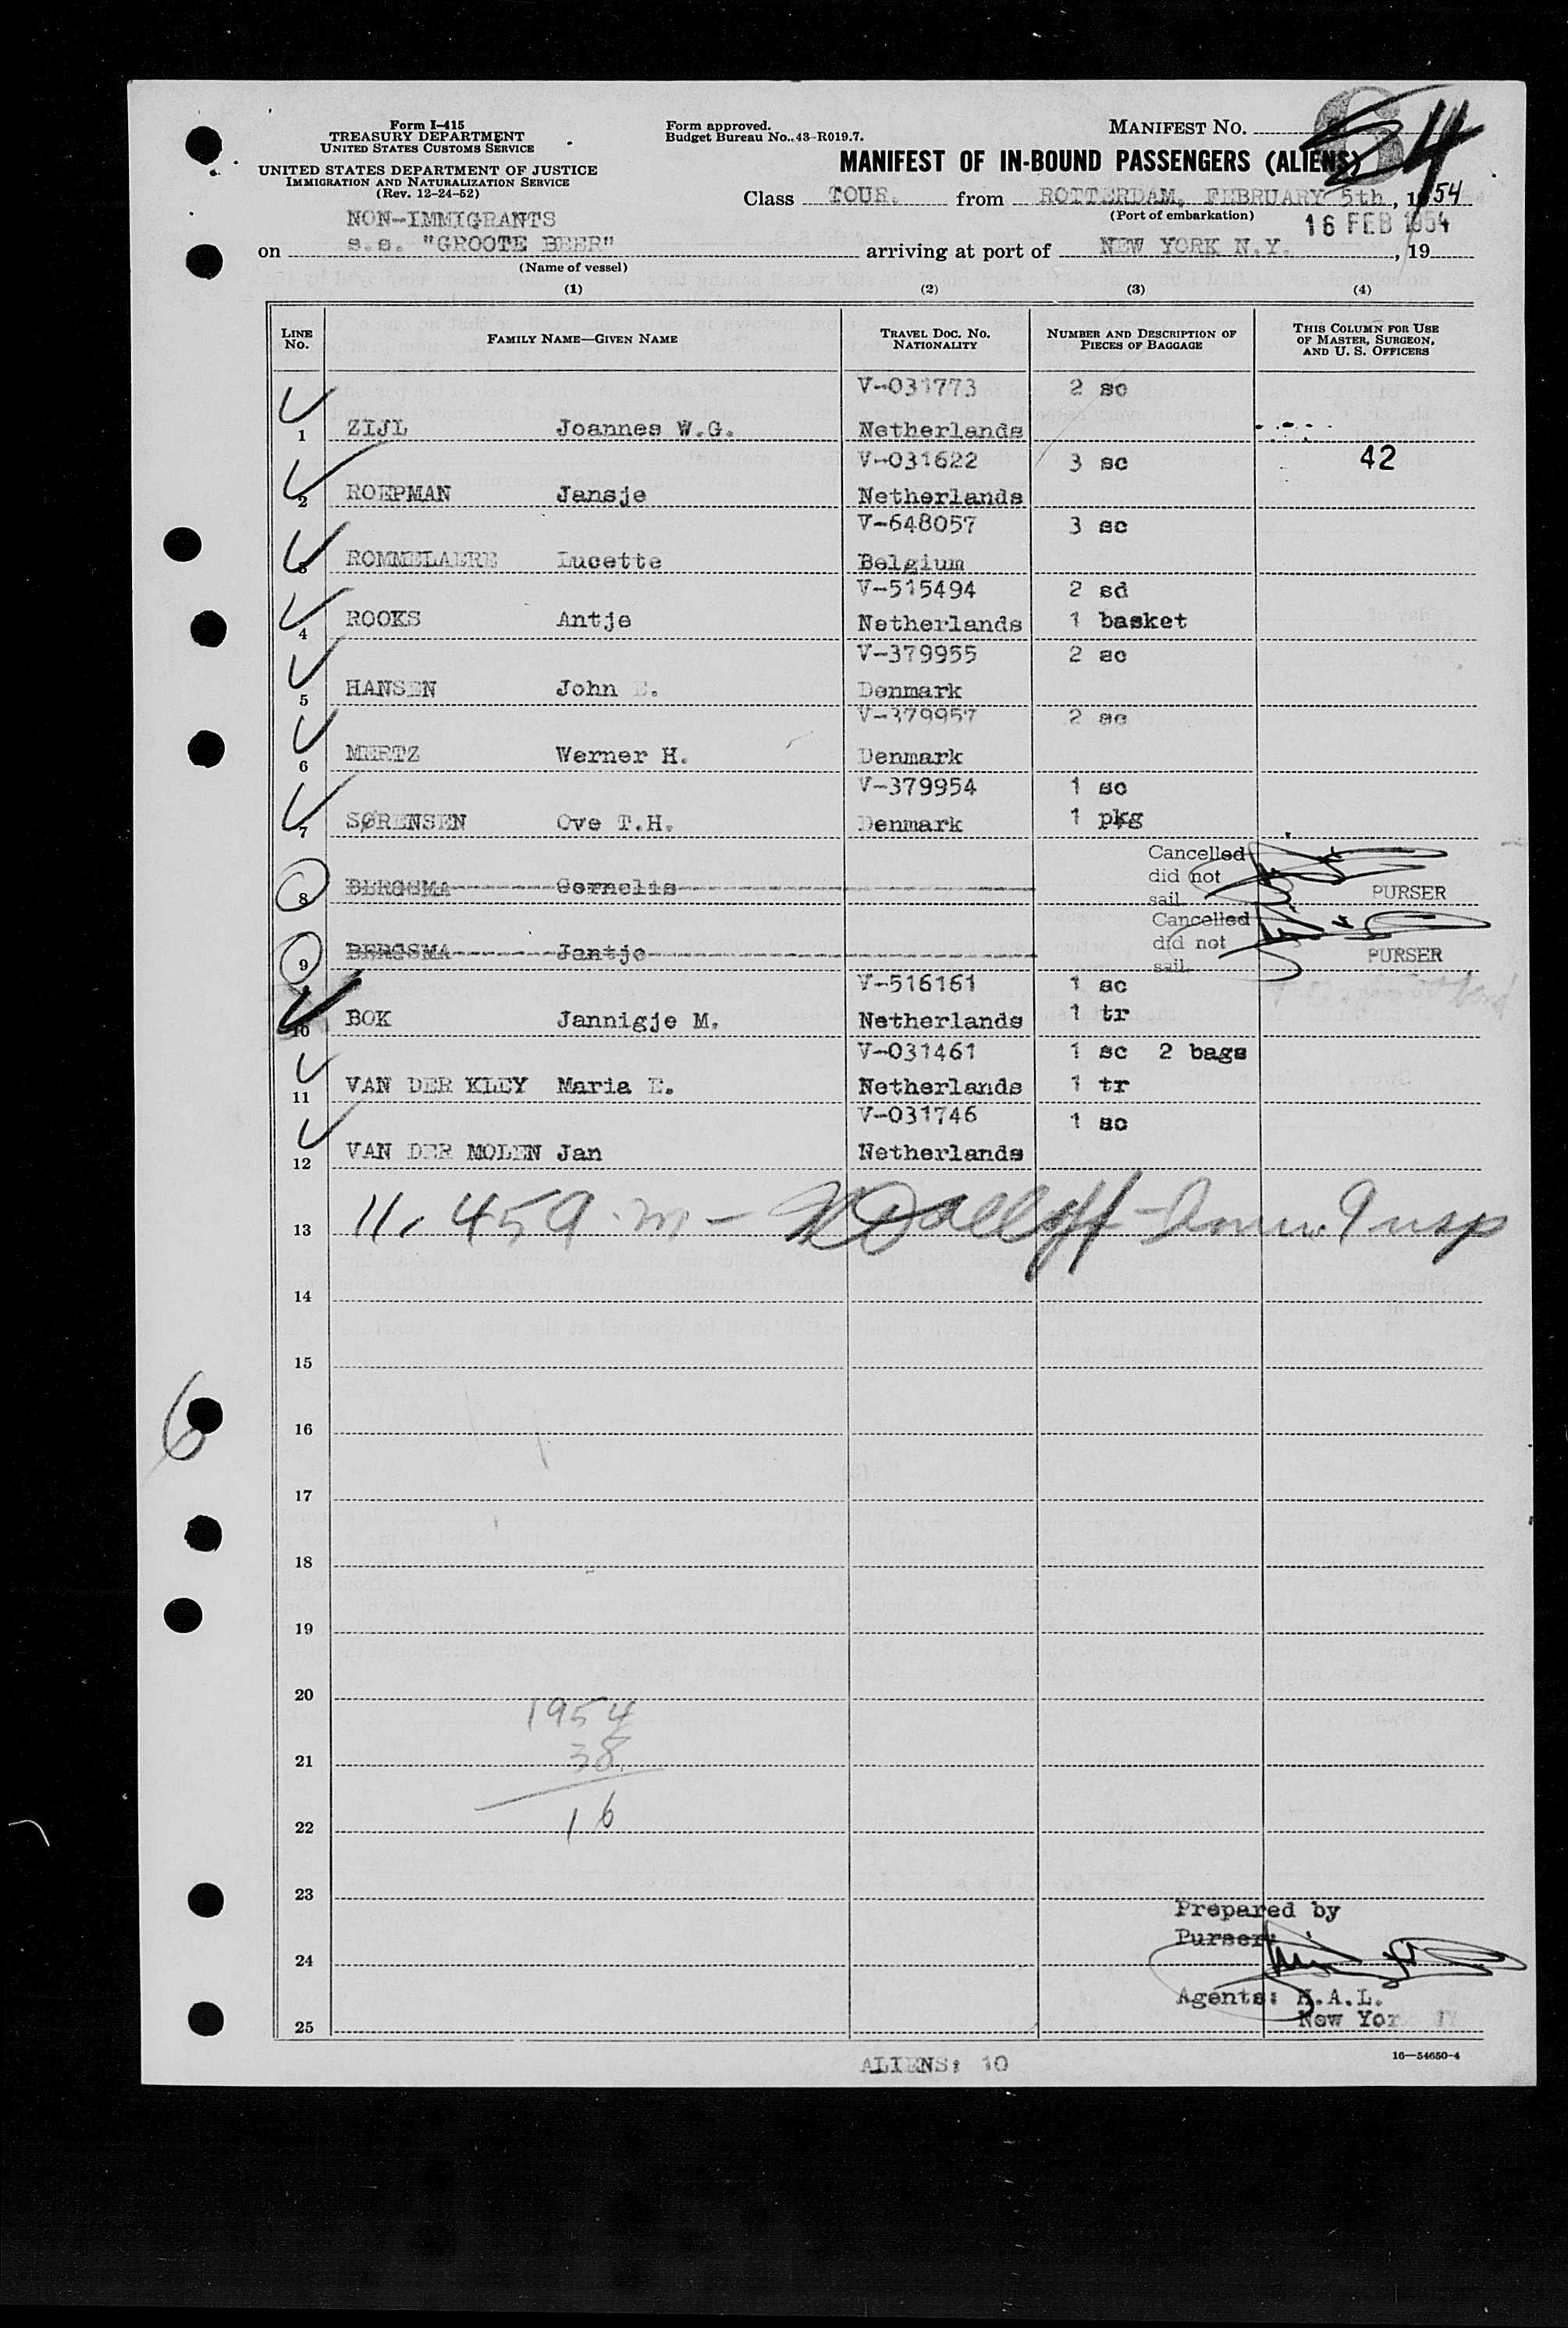 Form I-415
TREASURY DEPARTMENT
UNITED STATES CUSTOMS SERVICE
UNITED STATES DEPARTMENT OF JUSTICE
IMMIGRATION AND NATURALIZATION SERVICE
(Rev. 12-24-52)
Form approved.
Budget Bureau No. 43-R019.7.
MANIFEST NO. 54
MANIFEST OF IN-BOUND PASSENGERS (ALIENS)
Class TOUR. from ROTTERDAM, FEBRUARY 5th, 1954
(Port of embarkation)
16 FEB 1954
NON-IMMIGRANTS
on s.s. "GROOTE BEER" arriving at port of NEW YORK N.Y., 19
(Name of vessel)
(1) (2) (3) (4)
LINE NO. FAMILY NAME—GIVEN NAME TRAVEL DOC. NO. NATIONALITY NUMBER AND DESCRIPTION OF PIECES OF BAGGAGE THIS COLUMN FOR USE OF MASTER, SURGEON, AND U. S. OFFICERS
V-031773 2 sc
1 ZIJL Joannes W.G. Netherlands
V-031622 3 sc 42
2 ROEPMAN Jansje Netherlands
V-648057 3 sc
3 ROMMELAERE Lucette Belgium
V-515494 2 sd
4 ROOKS Antje Netherlands 1 basket
V-379955 2 sc
5 HANSEN John E. Denmark
V-379957 2 sc
6 MERTZ Werner H. Denmark
V-379954 1 sc
7 SØRENSEN Ove T.H. Denmark 1 pkg
8 BERGSMA Cornelis Cancelled did not sail PURSER
9 BERGSMA Jantje Cancelled did not sail. PURSER
V-516161 1 sc
10 BOK Jannigje M. Netherlands 1 tr
V-031461 1 sc 2 bags
11 VAN DER KLEY Maria E. Netherlands 1 tr
V-031746 1 sc
12 VAN DER MOLEN Jan Netherlands
13 11.45 a.m - Imm. Insp
14
15
16
6
17
18
19
20
1954
21 38
22 16
23
Prepared by
Purser:
24
Agents: H.A.L.
New York NY
25
ALIENS: 10
16—54650-4